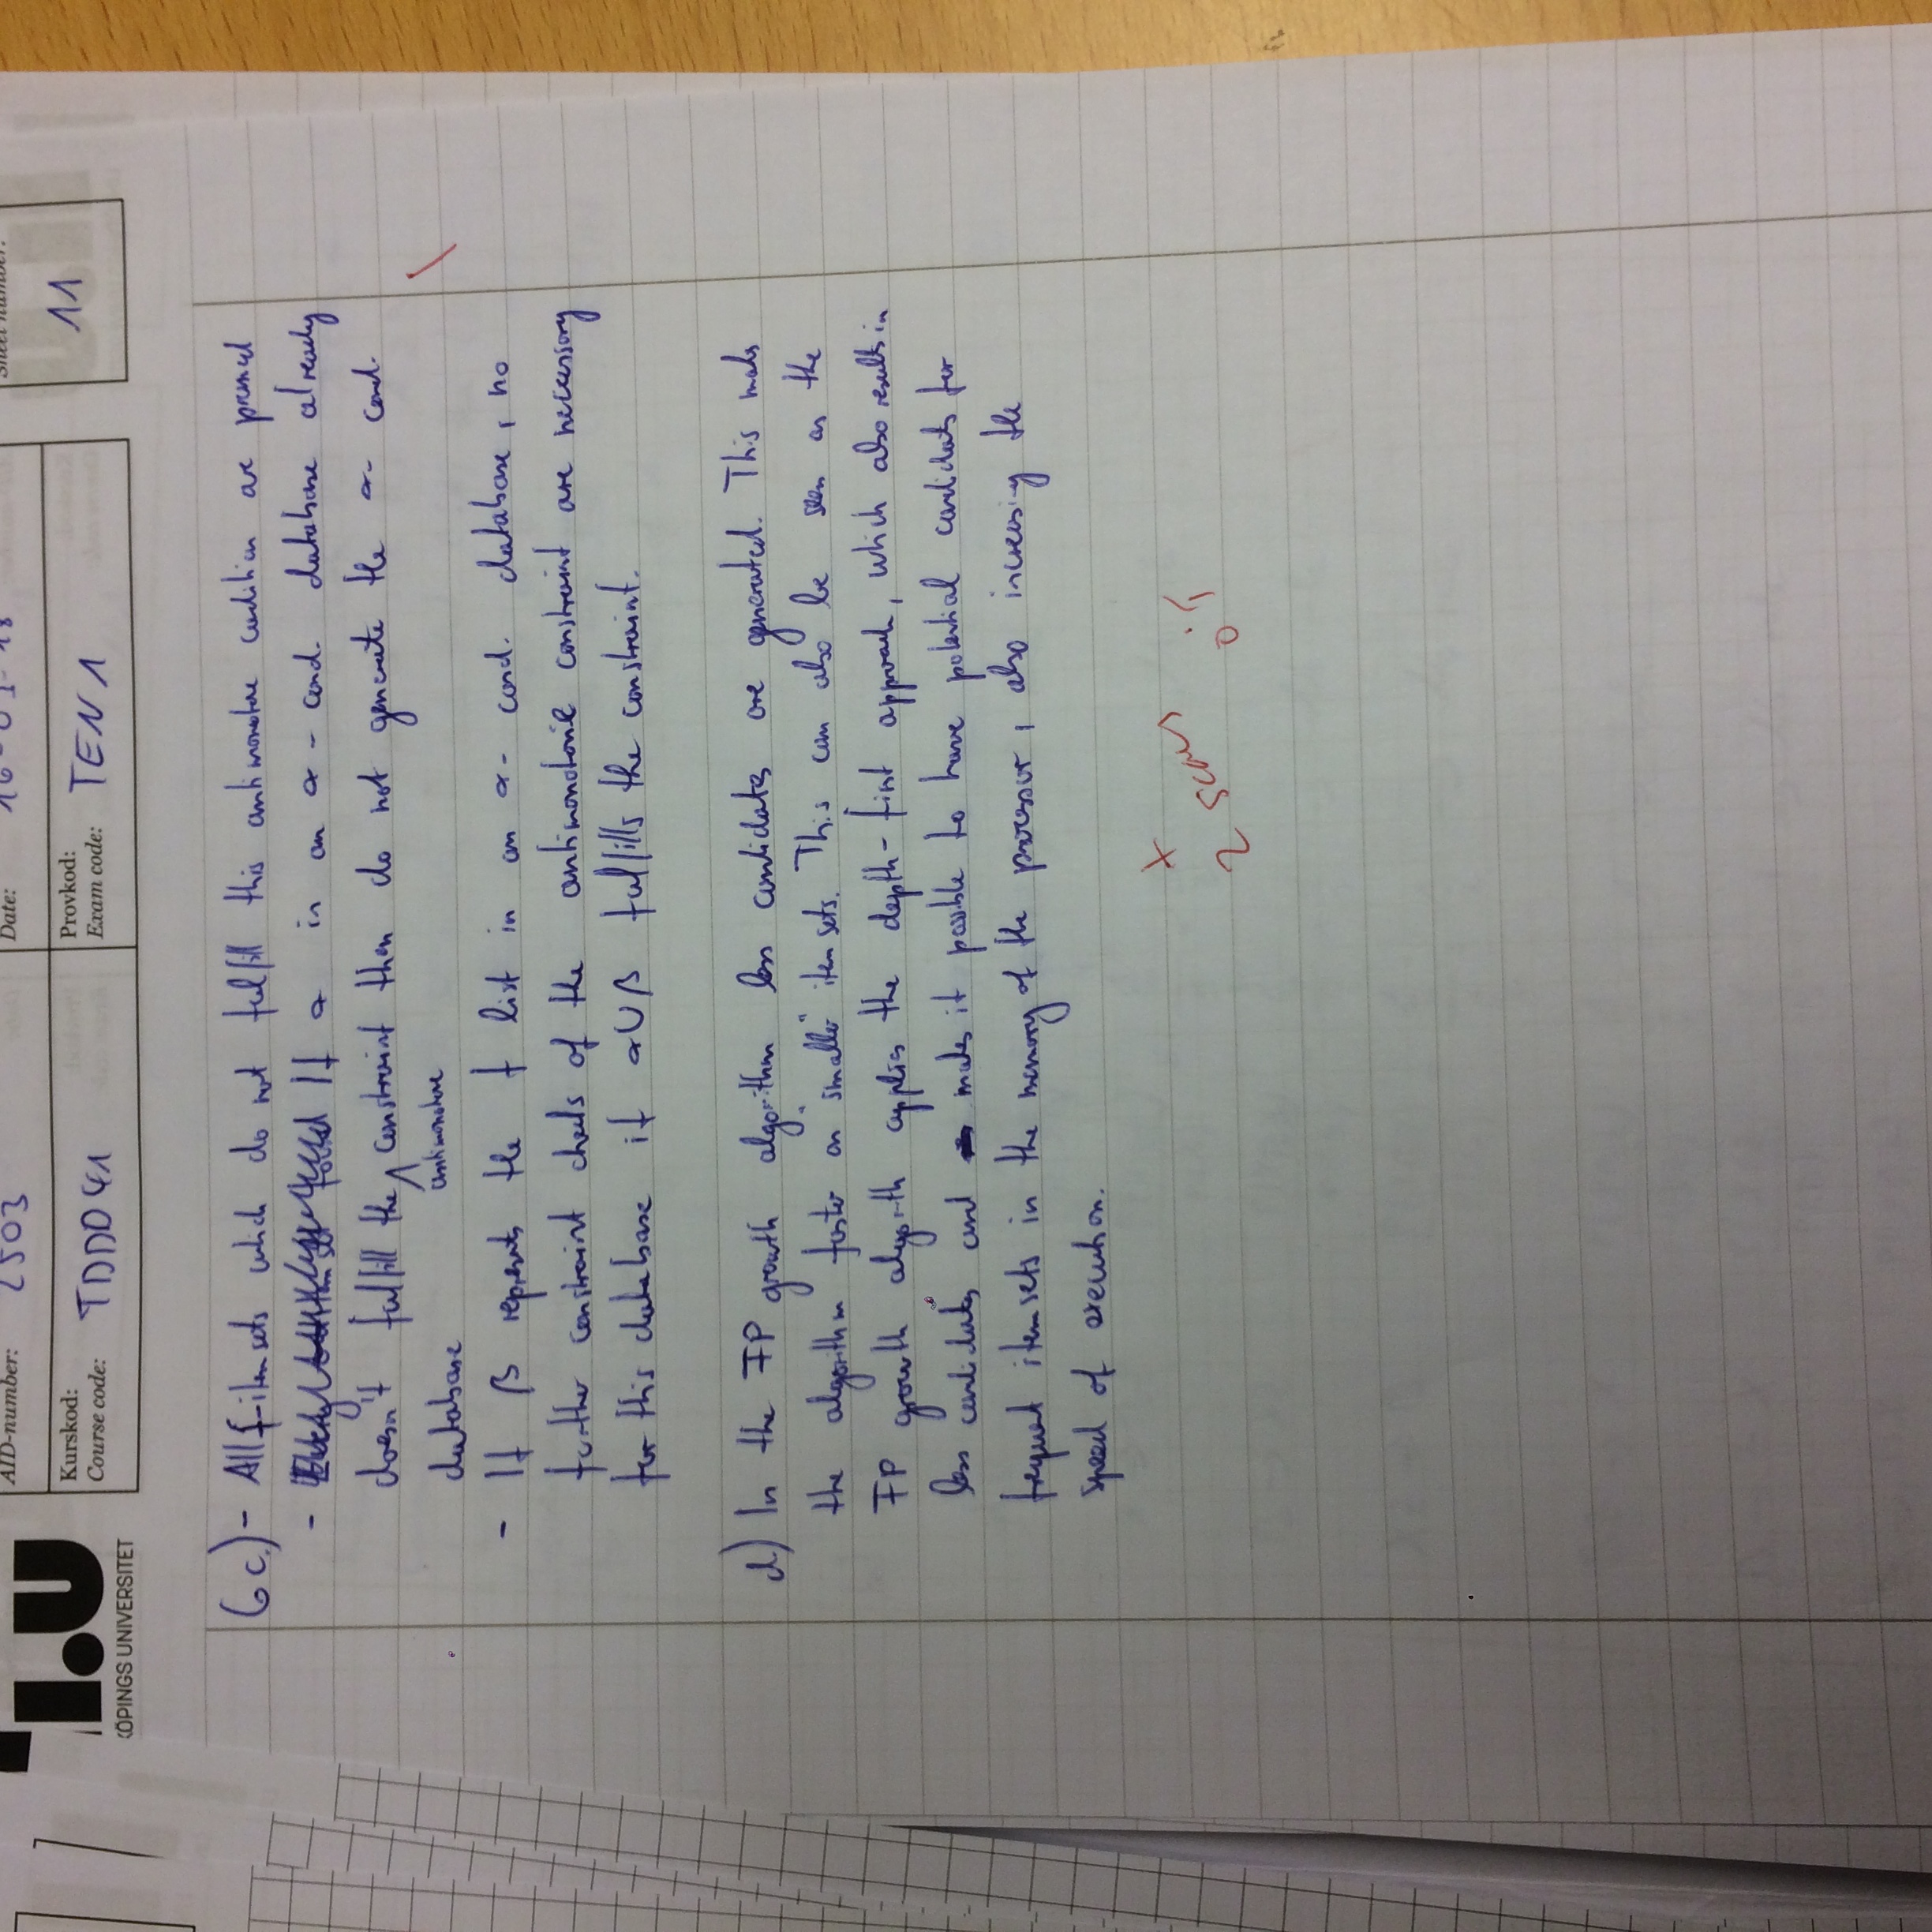 AID-number: 2503
Date:
Sheet number:
Kurskod:
Course code: TDDD41
Provkod:
Exam code: TEN1
11
KÖPINGS UNIVERSITET
6c.) - All f-itemsets which do not fulfill this antimonotone condition are pruned
- If α in an α - cond. database already
doesn't fulfill the antimonotone constraint then do not generate the α- cond.
database
- If β represents the f list in an α- cond. database, no
further constraint checks of the antimonotone constraint are necessary
for this database if α∪β fulfills the constraint.
d.) In the FP growth algorithm less candidates are generated. This makes
the algorithm faster on "smaller" item sets. This can also be seen as the
FP growth algorith applies the depth-first approach, which also results in
less candidates and makes it possible to have potential candidats for
frequent itemsets in the memory of the processor, also increasing the
speed of execution.
+
2 scans